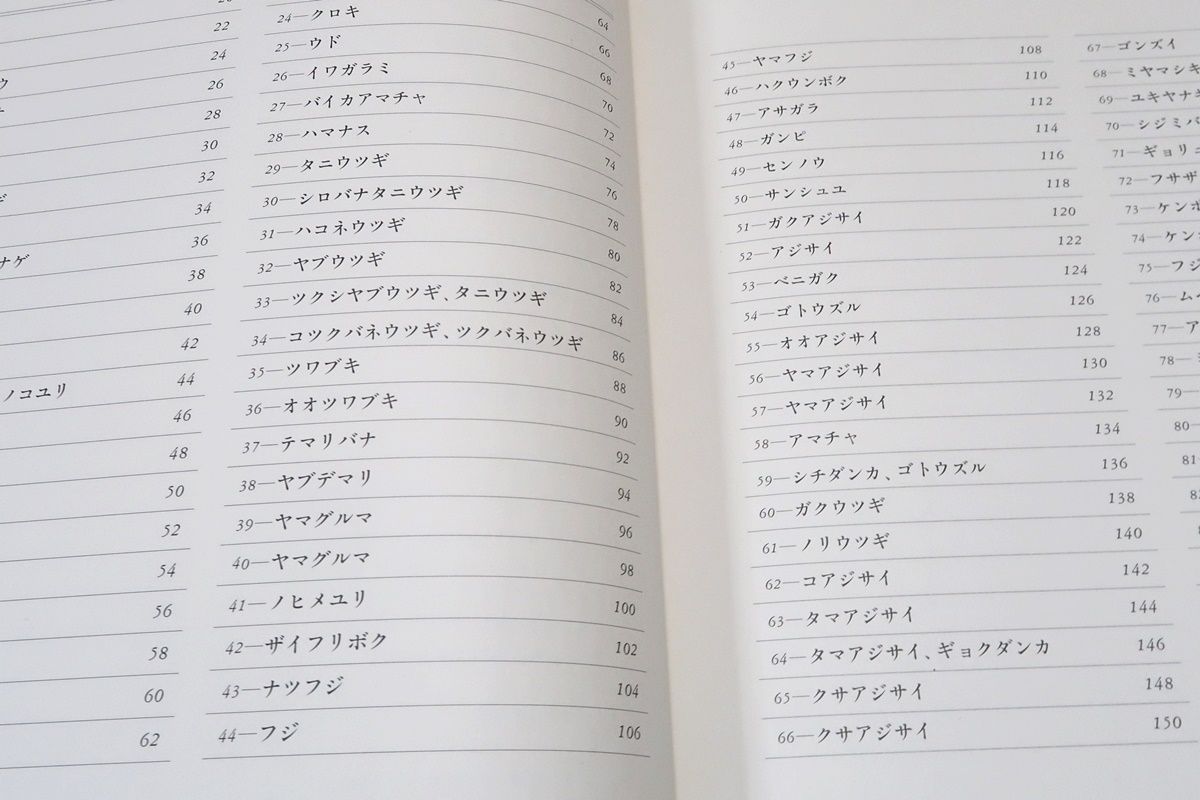 22
24
26
28
30
32
34
ナゲ 36
38
40
42
ノコユリ 44
46
48
50
52
54
56
58
60
62
24—クロキ 64
25—ウド 66
26—イワガラミ 68
27—バイカアマチャ 70
28—ハマナス 72
29—タニウツギ 74
30—シロバナタニウツギ 76
31—ハコネウツギ 78
32—ヤブウツギ 80
33—ツクシヤブウツギ、タニウツギ 82
34—コツクバネウツギ、ツクバネウツギ 84
35—ツワブキ 86
36—オオツワブキ 88
37—テマリバナ 90
38—ヤブデマリ 92
39—ヤマグルマ 94
40—ヤマグルマ 96
41—ノヒメユリ 98
42—ザイフリボク 100
43—ナツフジ 102
44—フジ 104
106
45—ヤマフジ 108
46—ハクウンボク 110
47—アサガラ 112
48—ガンピ 114
49—センノウ 116
50—サンシュユ 118
51—ガクアジサイ 120
52—アジサイ 122
53—ベニガク 124
54—ゴトウズル 126
55—オオアジサイ 128
56—ヤマアジサイ 130
57—ヤマアジサイ 132
58—アマチャ 134
59—シチダンカ、ゴトウズル 136
60—ガクウツギ 138
61—ノリウツギ 140
62—コアジサイ 142
63—タマアジサイ 144
64—タマアジサイ、ギョクダンカ 146
65—クサアジサイ 148
66—クサアジサイ 150
67—ゴンズイ
68—ミヤマシキ
69—ユキヤナギ
70—シジミバ
71—ギョリュ
72—フサザ
73—ケンポ
74—ケン
75—フジ
76—ム
77—ア
78—
79—
80—
81—